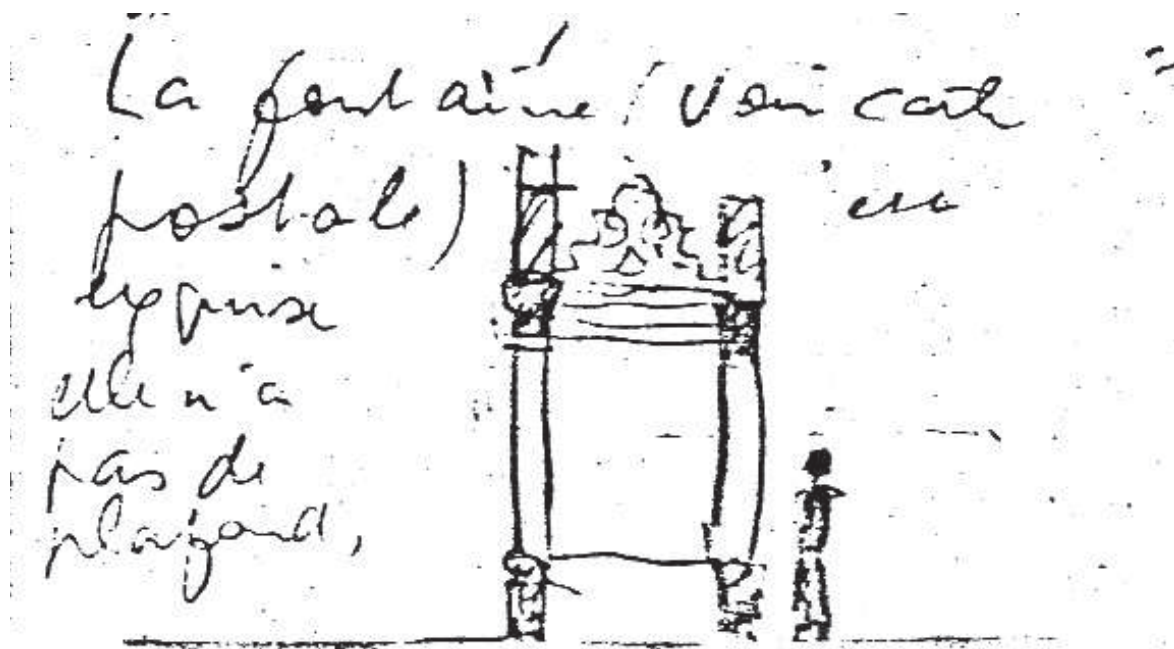 La fontaine (voir carte
postale) est
exquise
elle n'a
pas de
plafond,